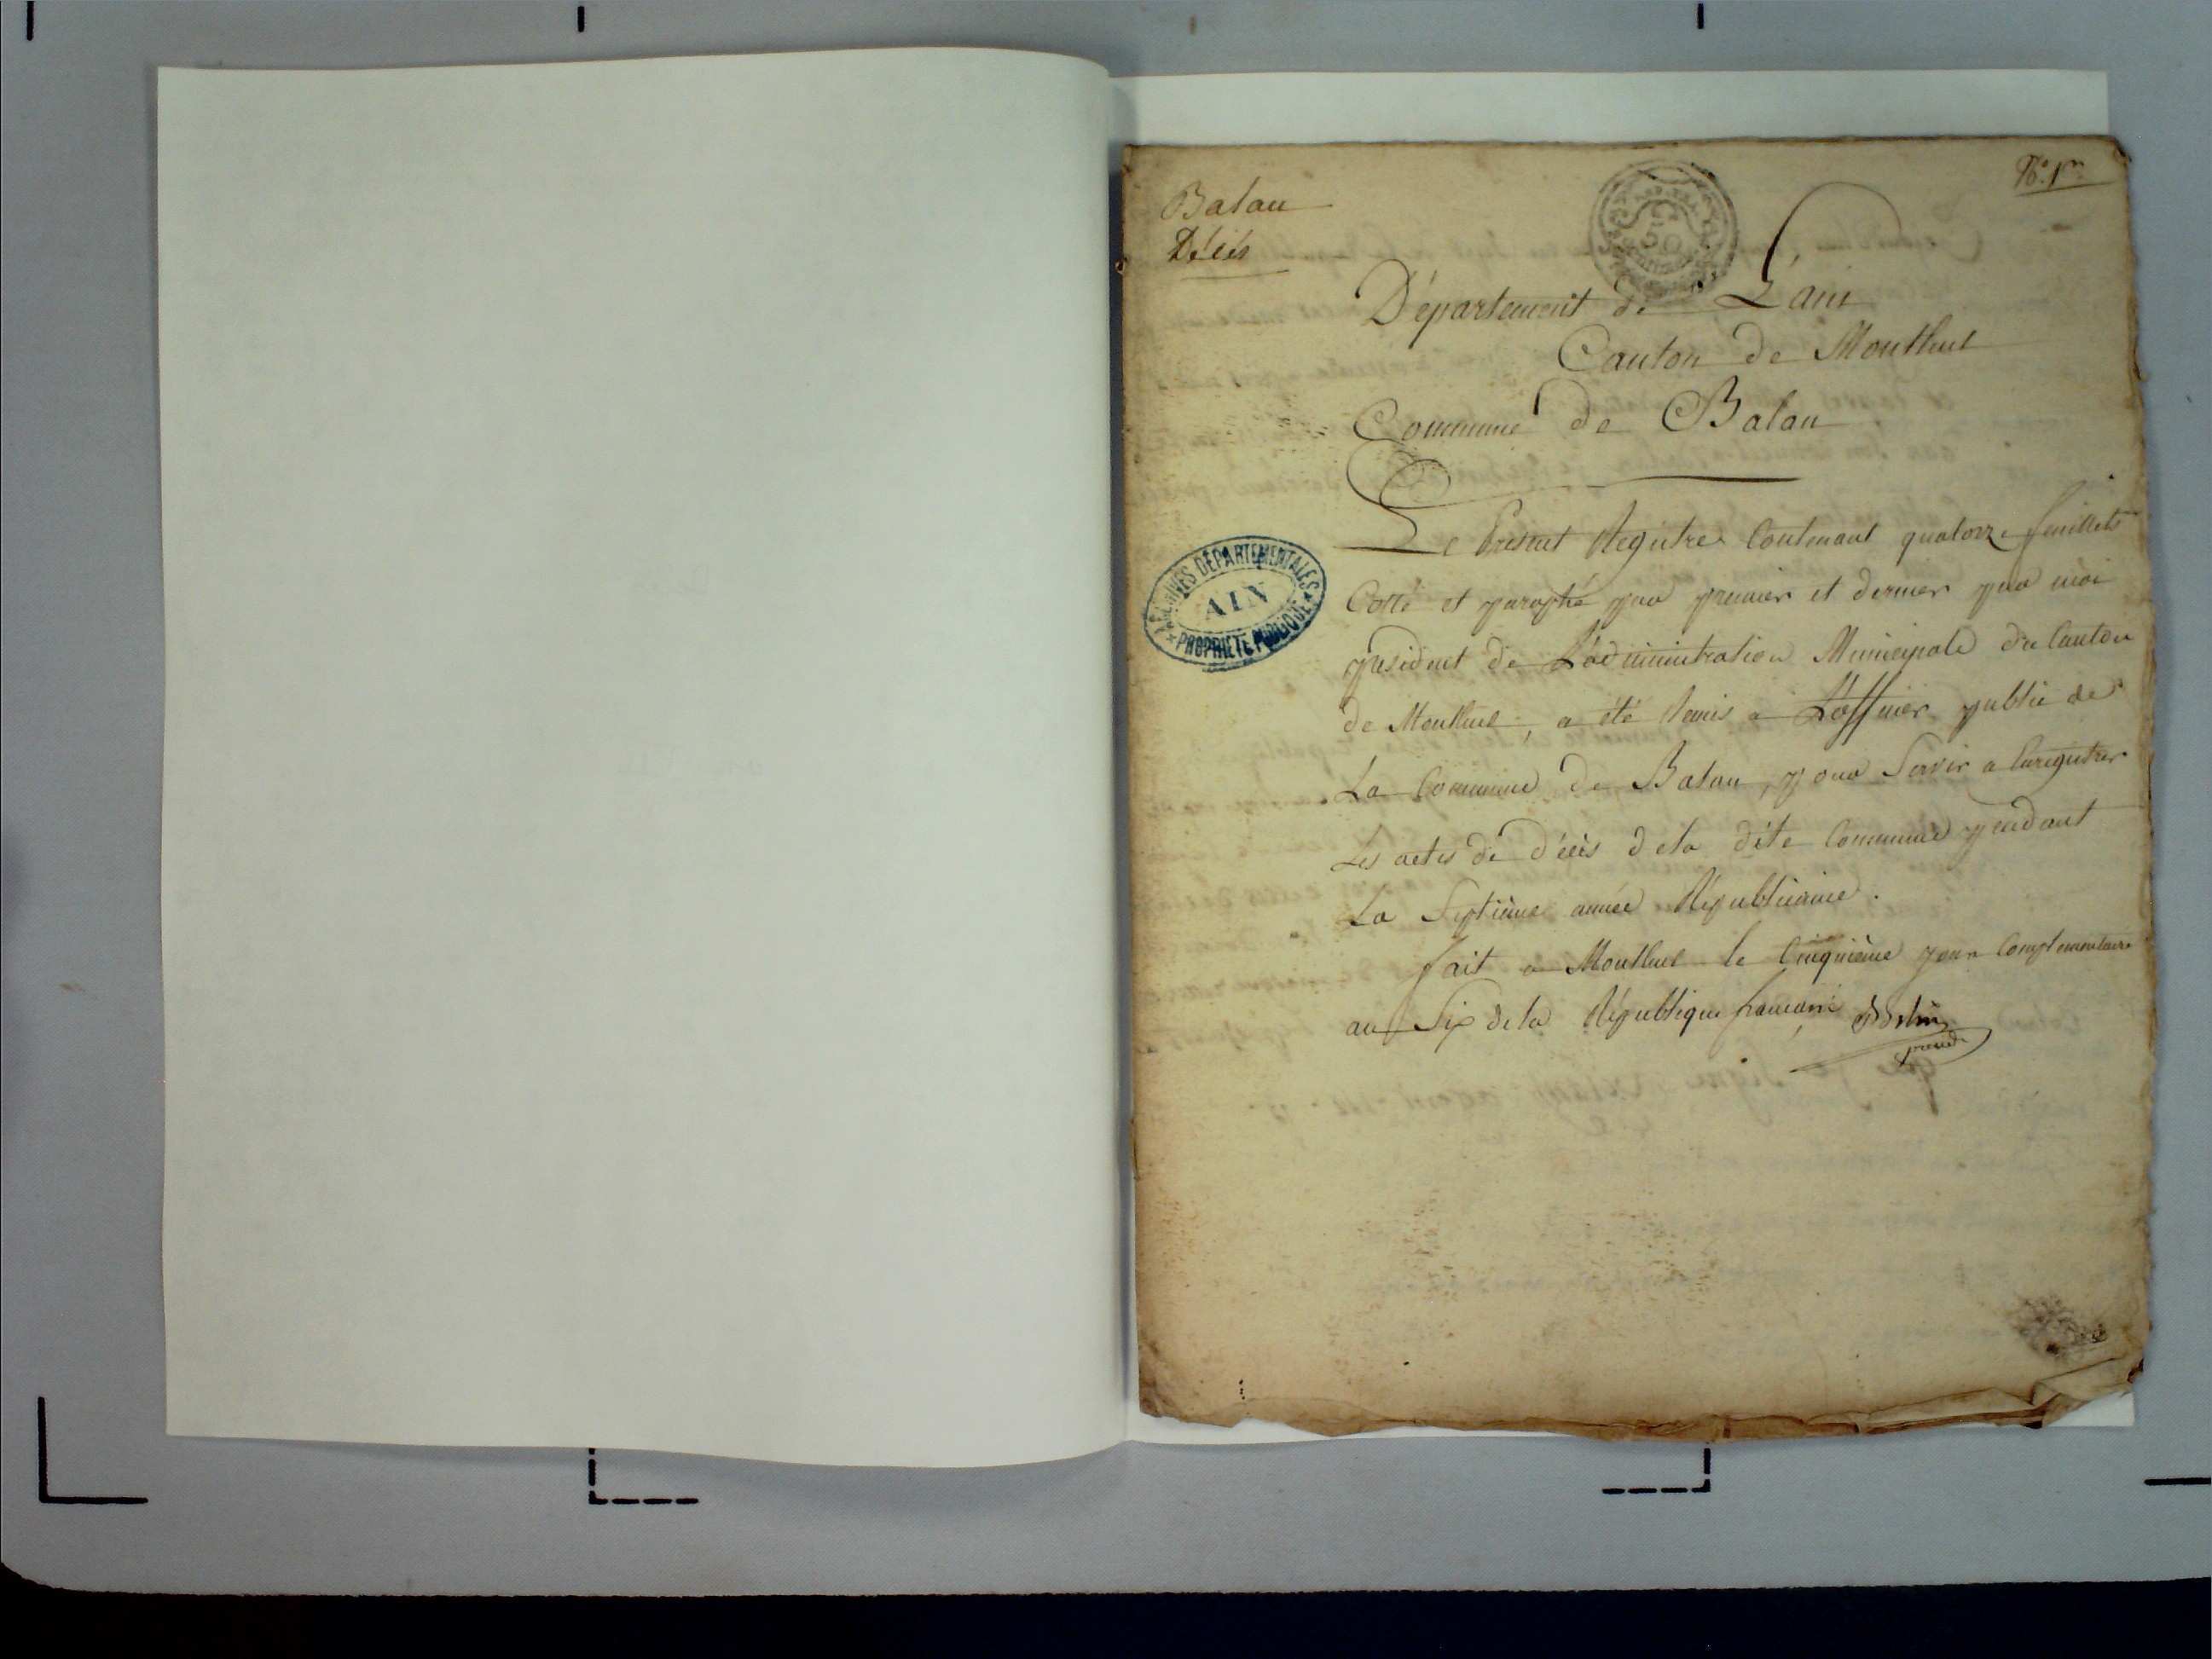 Balan
Décès
N.o 1er
50
Département de L'ain
Canton de Montluel
Commune de Balan
Le Présent Régistre Contenant quatorze feuillets
Cotté et paraphé par premier et dernier par moi
président de L'administration Municipale du Canton
de Montluel, a été remis a L'officier public de
La Commune de Balan, pour Servir a Enregistrer
Les actes de Décès dela dite Commune pendant
La Septième année Républicaine.
fait a Montluel le Cinquième jour Complementaire
an Six dela République francaise
présid.
ARCHIVES DÉPARTEMENTALES
AIN
PROPRIÉTÉ PUBLIQUE